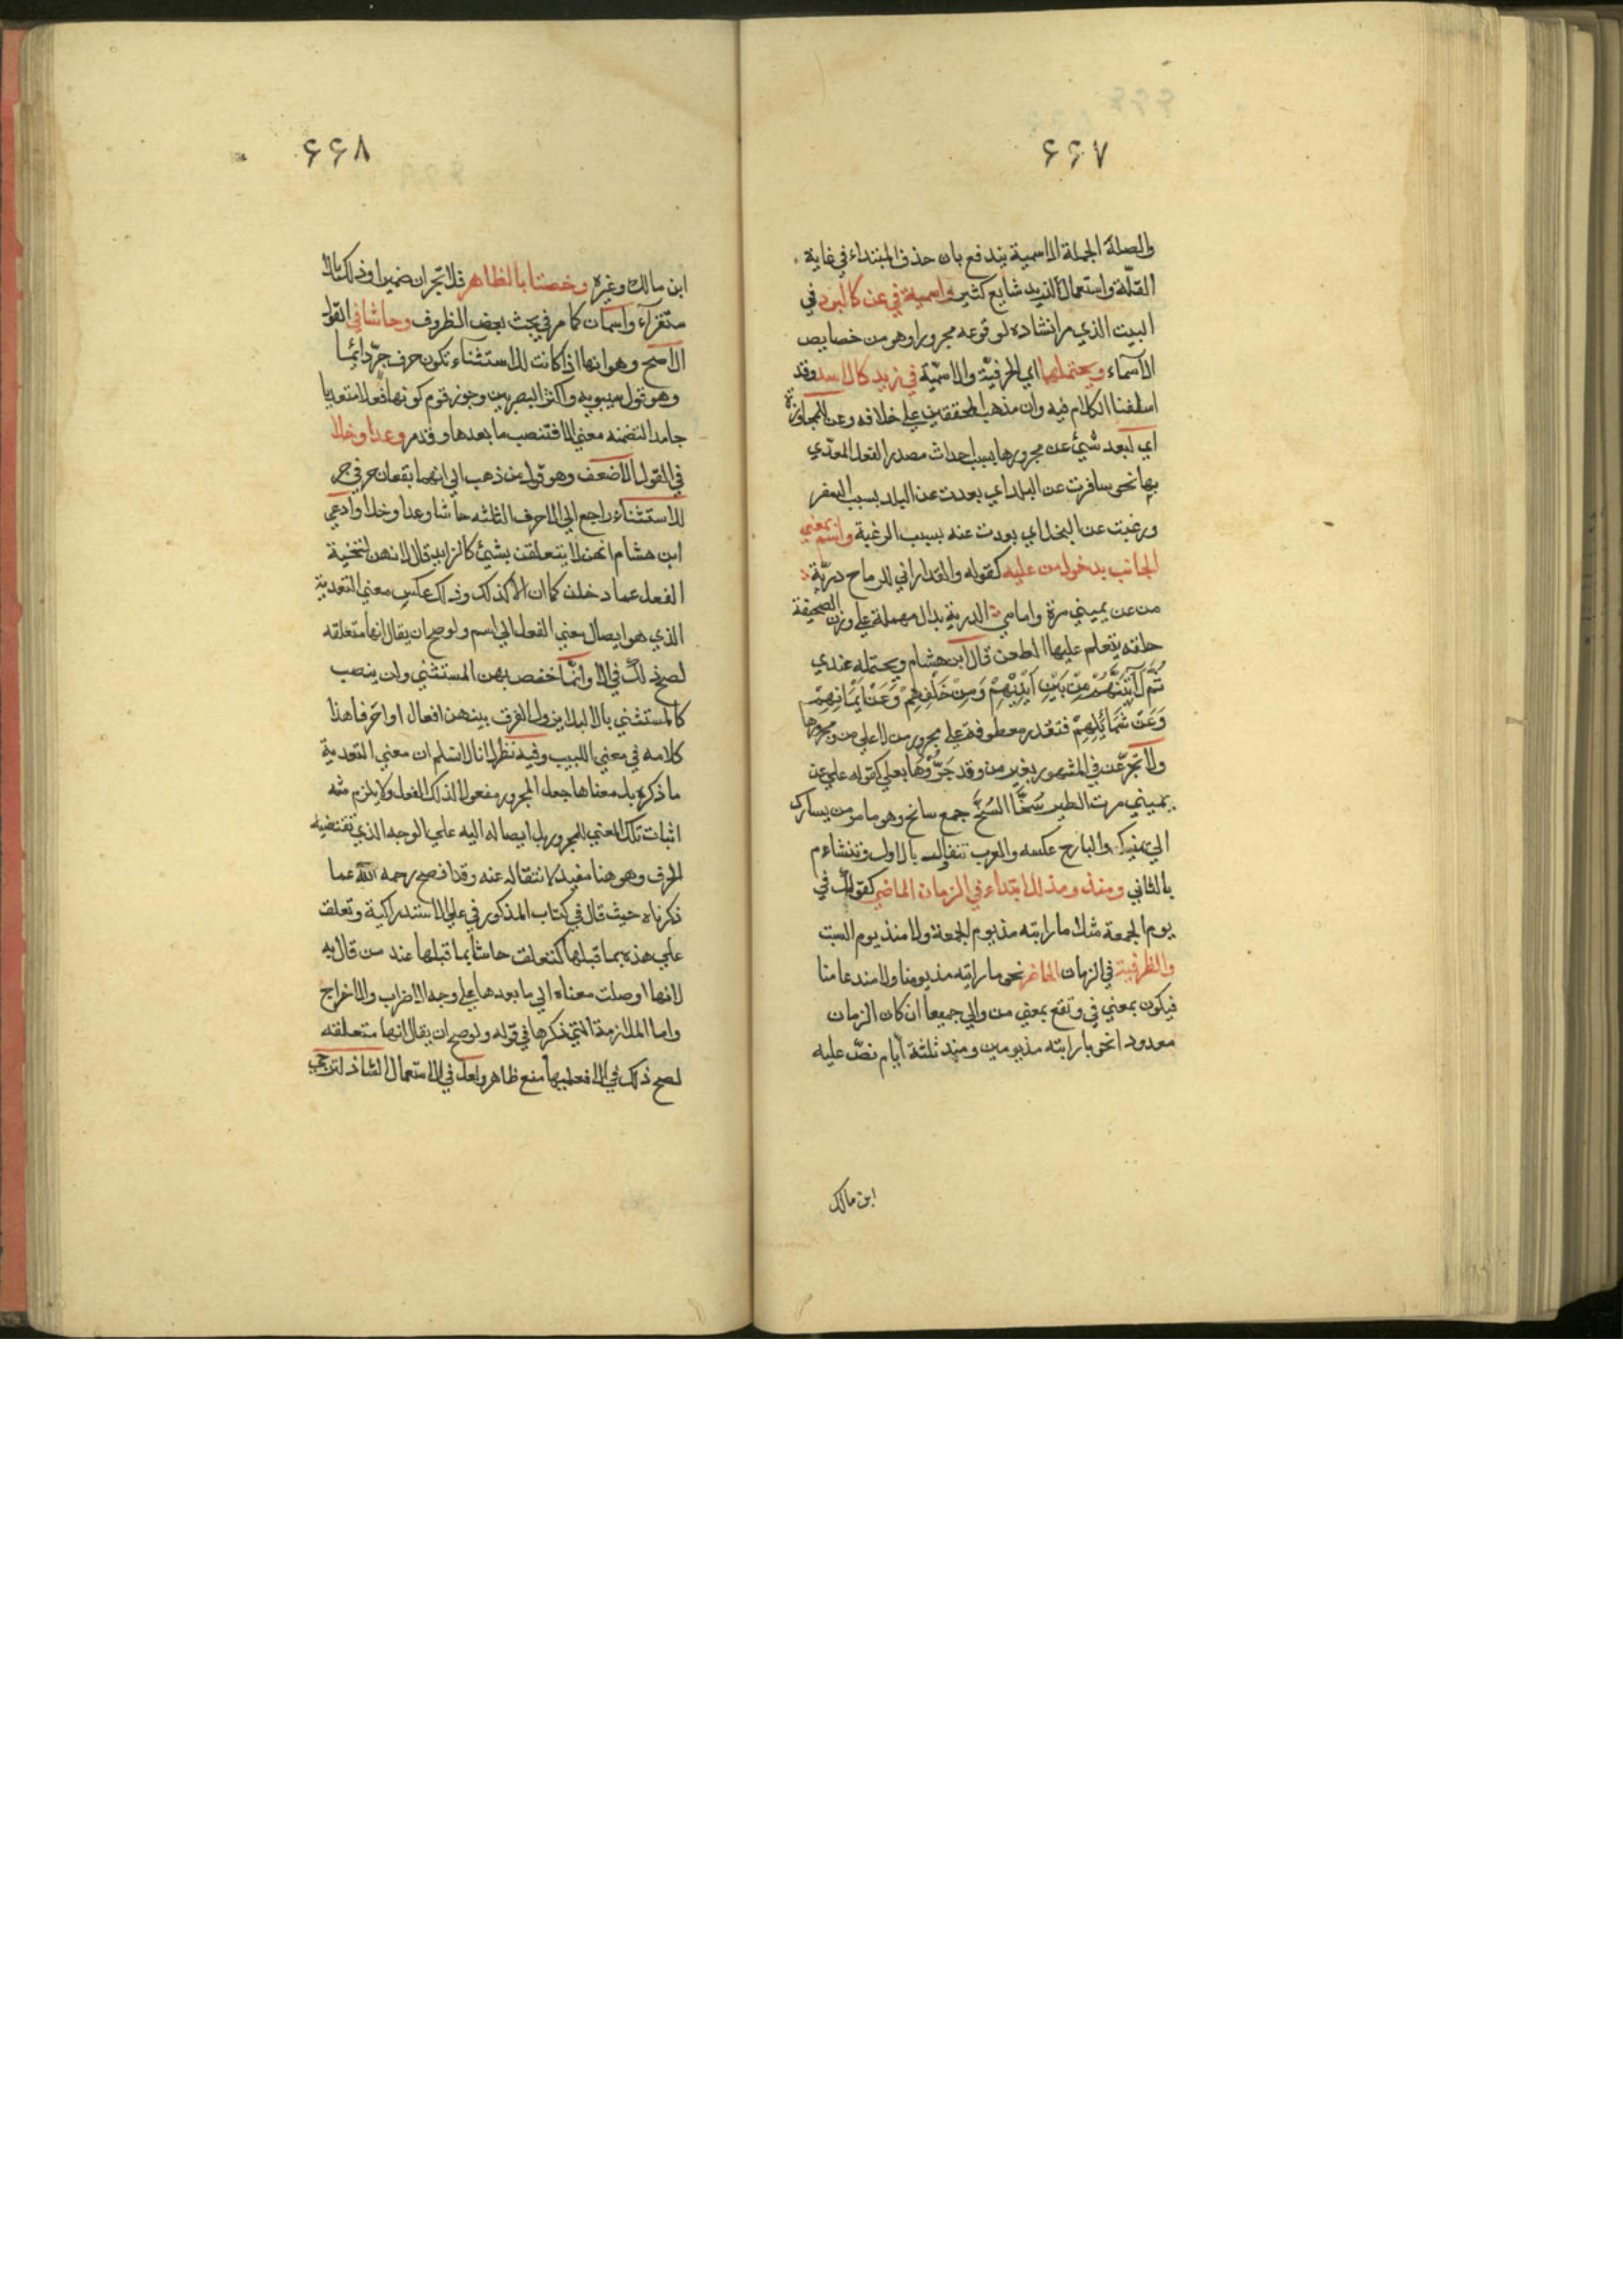 ٦٦٧
والصلة الجملة الاسمية يندفع بان حذف المبتداء في غاية
القلّة واستعمال الذي يد شايع كثير واسمية في عن كالبرد في
البيت الذي مر انشاده لوقوعه مجرورا وهو من خصايص
الاسماء ويحتملهما اي الحرفيّة والاسميّة في زيد كالاسد وقد
اسلفنا الكلام فيه وان مذهب المحققين علي خلافه وعن للمجاوزة
اي لبعد شئ عن مجرورها بسبب احداث مصدر الفعل المعدّي
بها نحو سافرت عن البلد اي بعدت عن البلد بسبب السفر
ورغبت عن البخل اي بعدت عنه بسبب الرغبة واسم بمعني
الجانب بدخول من عليه كقوله ولقد اراني للرماح دريّة
من عن يميني مرة وامامي الدرية بدال مهملة علي وزن الصحيفة
حلقه يتعلم عليها الطعن قال ابن هشام ويحتمله عندي
ثُمَّ لَآتِيَنَّهُمْ مِنْ بَيْنِ اَيْدِيْهِمْ وَمِنْ خَلْفِهِمْ وَعَنْ اَيْمَانِهِمْ
وَعَنْ شَمَائِلِهِمْ فتقدر معطوفة علي مجرور من لا علي من ومجرورها
ولا تجرّ عن في المشهور بغير من وقد جَرُّوْهَا بعلي كقوله علي عن
يميني مرت الطير سُنَّحًا السُنَّح جمع سانح وهو ما مر من يسارك
الي يمينك والبارح عكسه والعرب تتفأل بالاول وتتشاءم
بالثاني ومنذ ومذ للابتداء في الزمان الماضي كقولك في
يوم الجمعة مثلا ما رايته مذ يوم الجمعة ولا منذ يوم السبت
والظرفية في الزمان الحاضر نحو ما رايته مذ يومنا ولا منذ عامنا
فيكون بمعني في وتقع بمعني من والي جميعا ان كان الزمان
معدودا نحو ما رايته مذ يومين ومنذ ثلثة ايام نصّ عليه
ابن مالك
٦٦٨
ابن مالك وغيره وخصتا بالظاهر فلا تجران ضميرا وذلك بالا
ستقراء واسمان كما مر في بحث بعض الظروف وحاشا في القول
الاصح وهو انها اذا كانت للاستثناء تكون حرف جرّ دائما
وهو قول سيبويه واكثر البصريين وجوز قوم كونها فعلا متعديا
جامدا لتضمنه معني الا فتنصب ما بعدها وقد مر وعدا وخلا
في القول الاضعف وهو قول من ذهب الي انهما يقعان حرفي جر
للاستثناء راجع الي الاحرف الثلثه حاشا وعدا وخلا وادعي
ابن هشام انهن لا يتعلقن بشئ كالزايد قال لانهن لتنحية
الفعل عما دخلن كما ان الا كذلك وذلك عكس معني التعدية
الذي هو ايصال معني الفعل الي اسم ولو صح ان يقال انها متعلقه
لصح ذلك في الا وانّما خفض بهن المستثني وان ينصب
كالمستثني بالا ليلا يزول الفرق بينهن افعالا او احرفا هذا
كلامه في مغني اللبيب وفيه نظر لانا لا نسلم ان معني التعدية
ما ذكره بل معناها جعل المجرور مفعولا لذلك الفعل ولا يلزم منه
اثبات تلك المعني للمجرور بل ايصاله اليه علي الوجه الذي تقتضيه
الحرف وهو هنا مفيد لانتقاله عنه وقد افصح رحمه الله عما
ذكرناه حيث قال في كتاب المذكور في علي الاستدراكية وتعلق
علي هذه بما قبلها كتعلق حاشا بما قبلها عند من قال به
لانها اوصلت معناه الي ما بعدها علي وجه الاضراب والاخراج
واما الملازمة التي ذكرها في قوله ولو صح ان يقال انها متعلقه
لصح ذلك في الا فعليها منع ظاهر ولعل في الاستعمال الشاذ لترجي